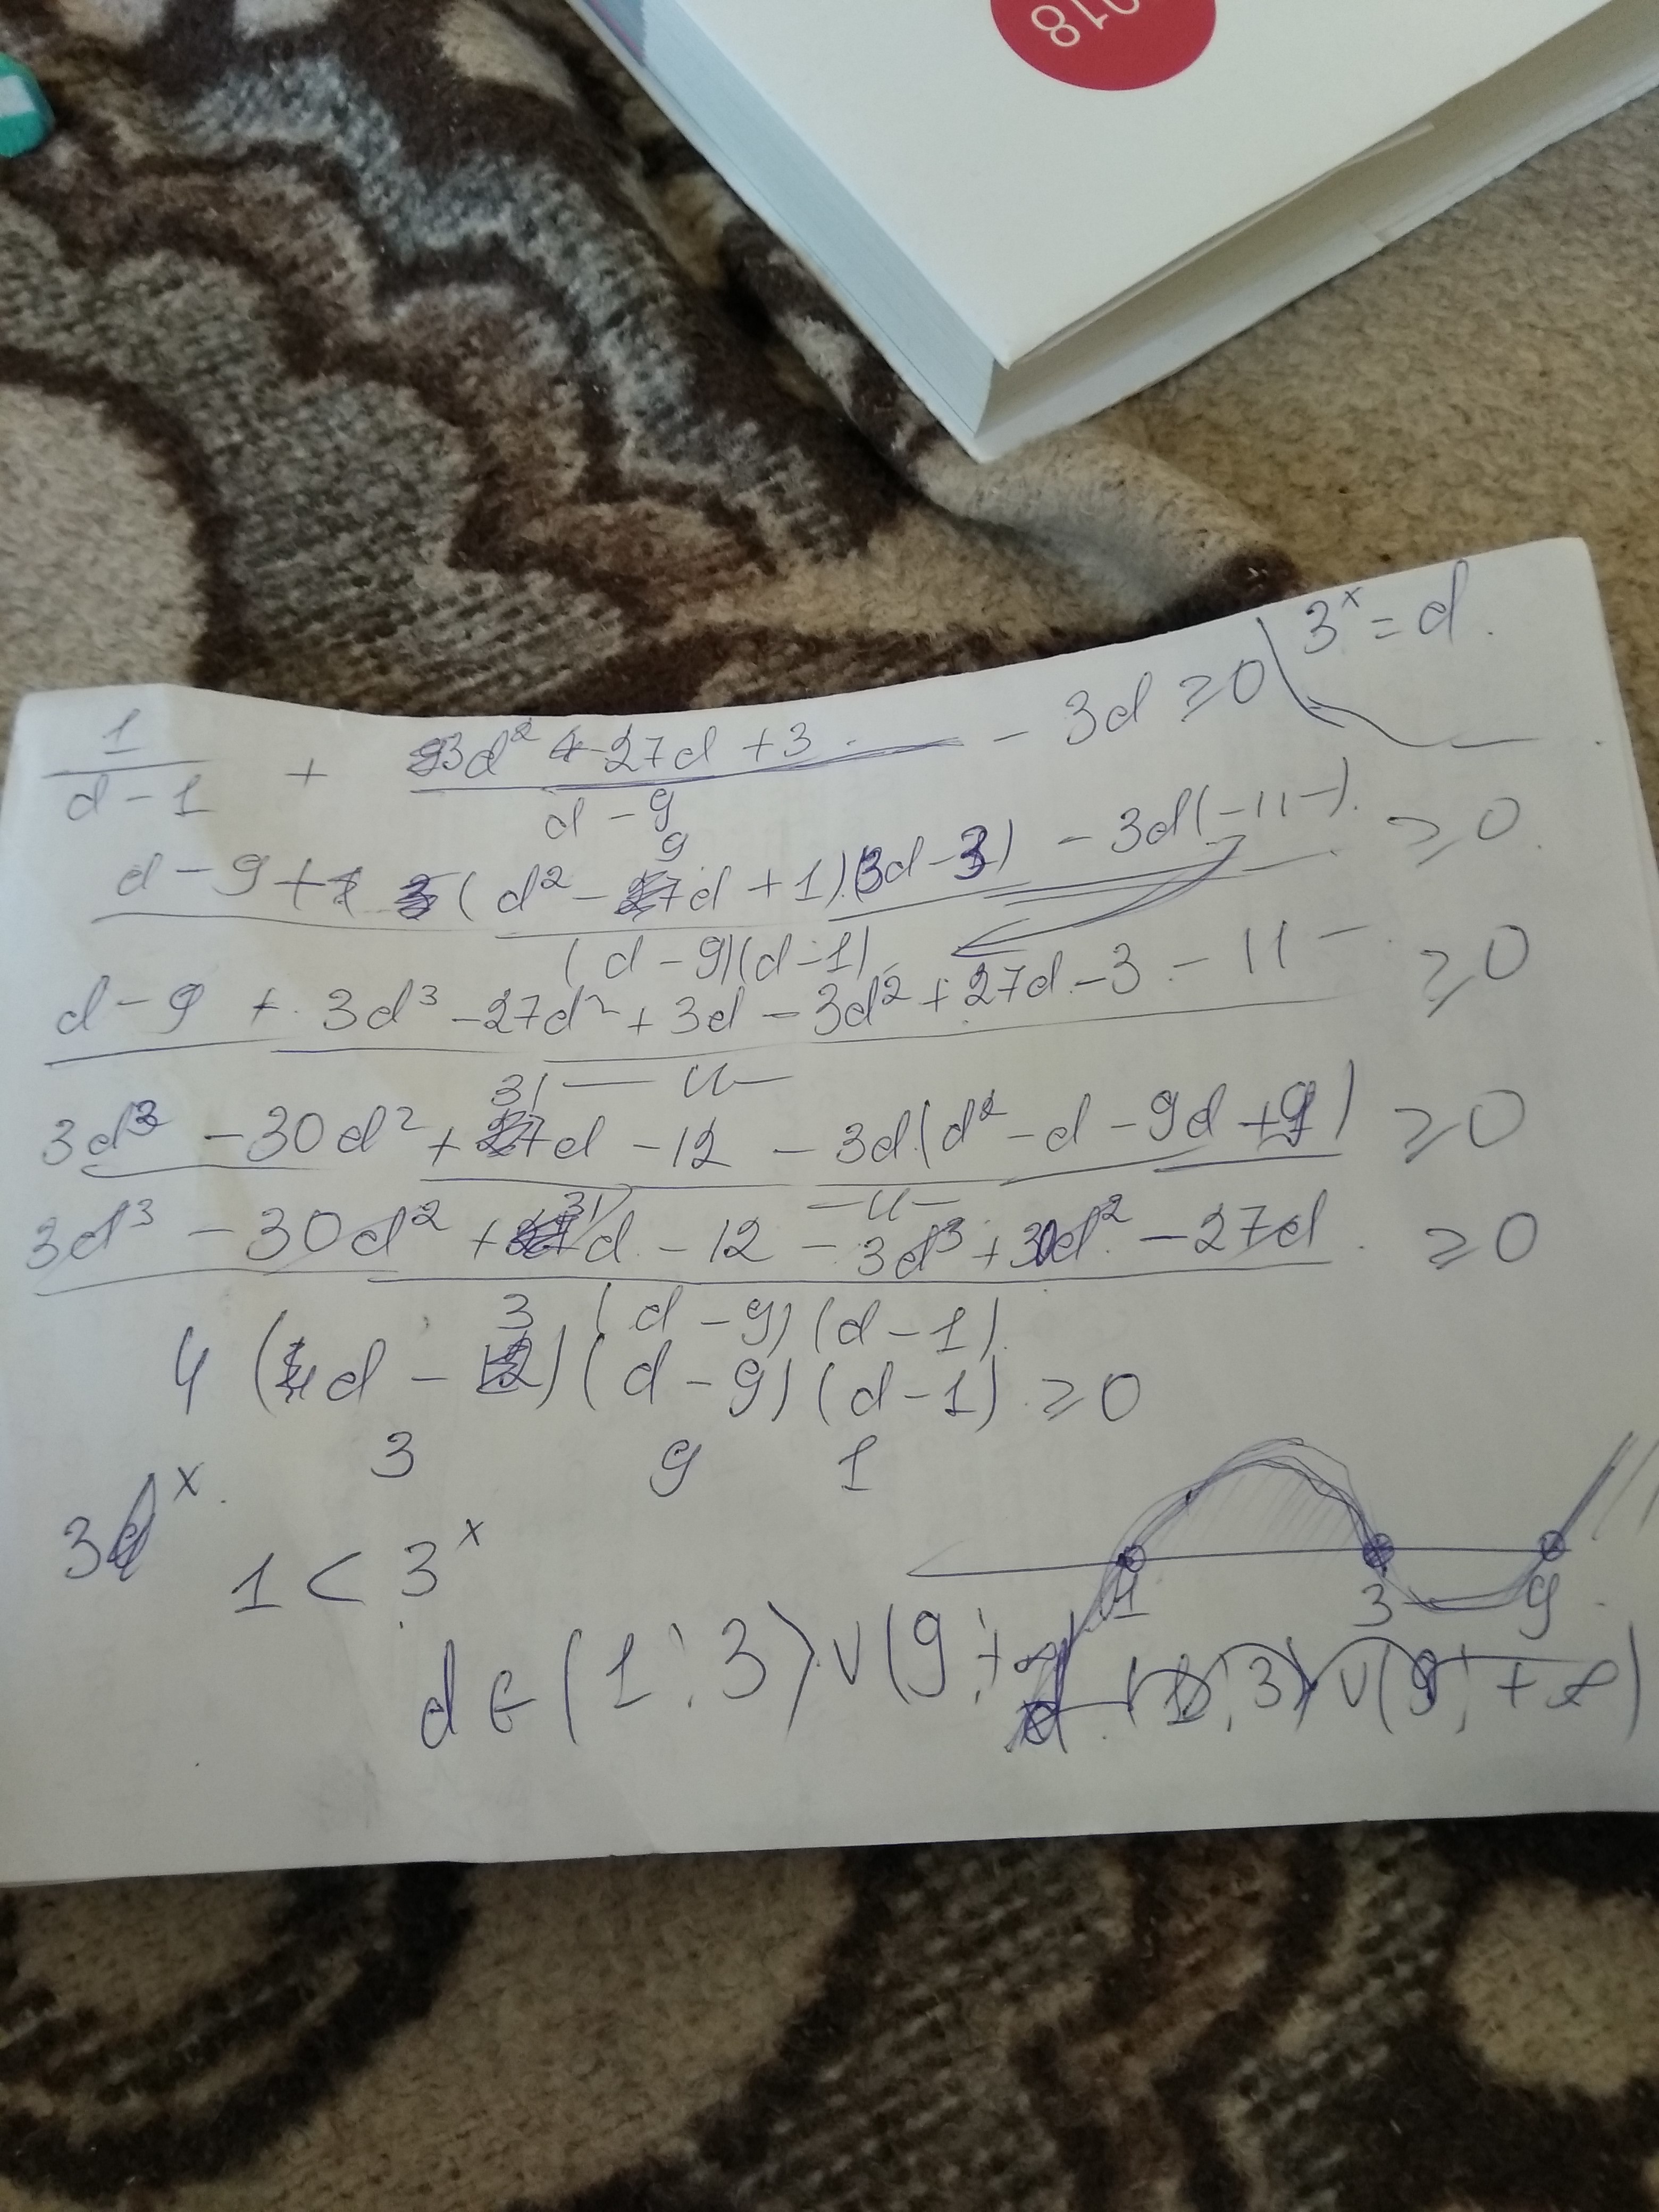 018
3ˣ = d.
1/(d-1) + (3d² - 27d + 3)/(d-9) - 3d ≥ 0
(d-9+(d² - 9d + 1)(3d-3) - 3d(-11-))/((d-9)(d-1)) ≥ 0
d-9 + 3d³ - 27d² + 3d - 3d² + 27d - 3 - 11 - ≥ 0
-11-
3d³ - 30d² + 31d - 12 - 3d(d² - d - 9d + 9) ≥ 0
-11-
3d³ - 30d² + 31d - 12 - 3d³ + 30d² - 27d ≥ 0
(d-9)(d-1)
4(d-3)(d-9)(d-1) ≥ 0
3 9 1
3ˣ
1 < 3ˣ
1 3 9
d ∈ (1; 3) ∪ (9; +∞)
(1; 3) ∪ (9; +∞)